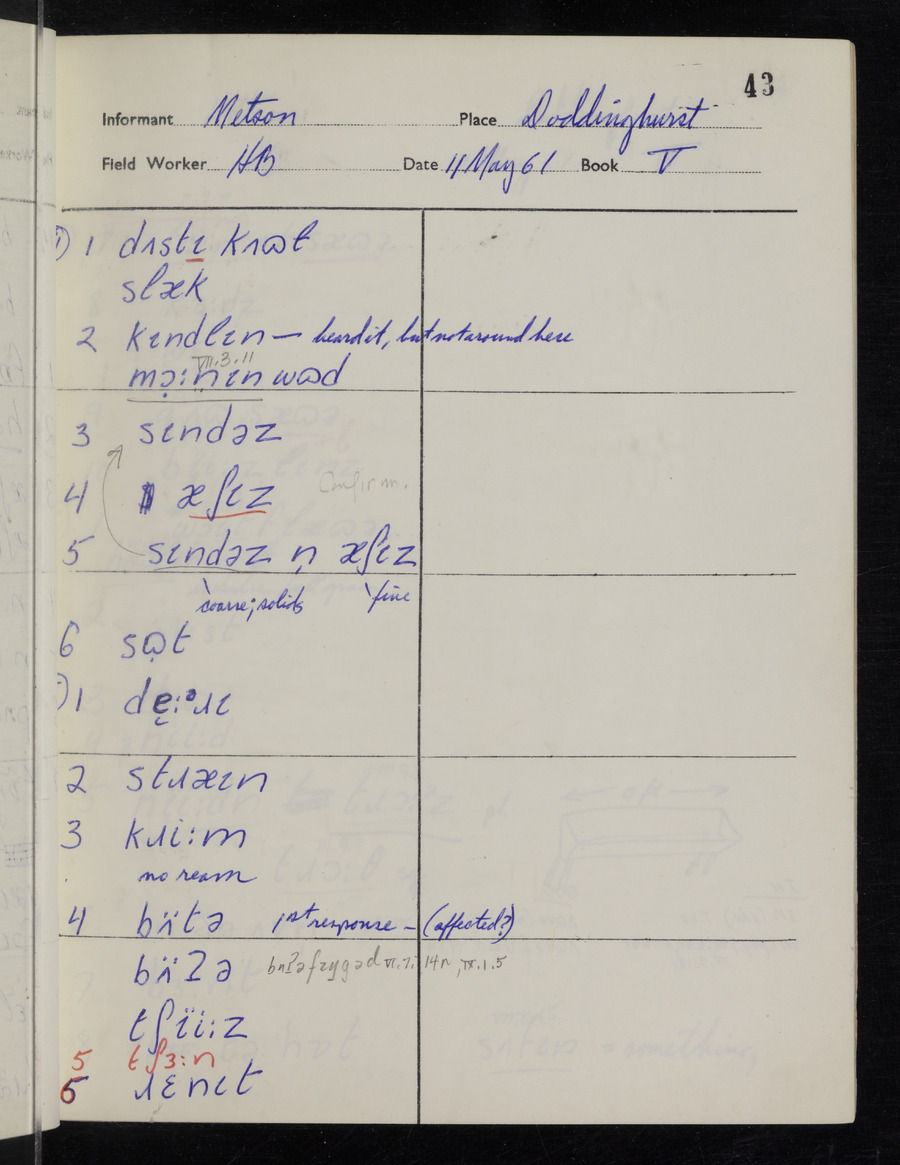 43
Informant Metson Place Doddinghurst
Field Worker HB Date 11 May 61 Book V
1 dʌstɩ kʌɷt
slæk
2 kɩndlɩn — heard it, but not around here
VII.3.11
mɔ̣:nɩn wɷd
3 sɩndəz
4 æʃɩz Confirm.
5 sɩndəz n̩ æʃɩz
coarse; solids fine
6 sɷ̣t
1 dẹ:ᵊɹɩ
2 stɹæɩn
3 kɹi:m
no ream
4 bʌ̈tə 1st response — (affected?)
bʌ̈ʔə bʌʔəfɹɩgəd VI.7.14n, IX.1.5
tʃïi:z
5 tʃɜ:n
6 ɹɛnɩt